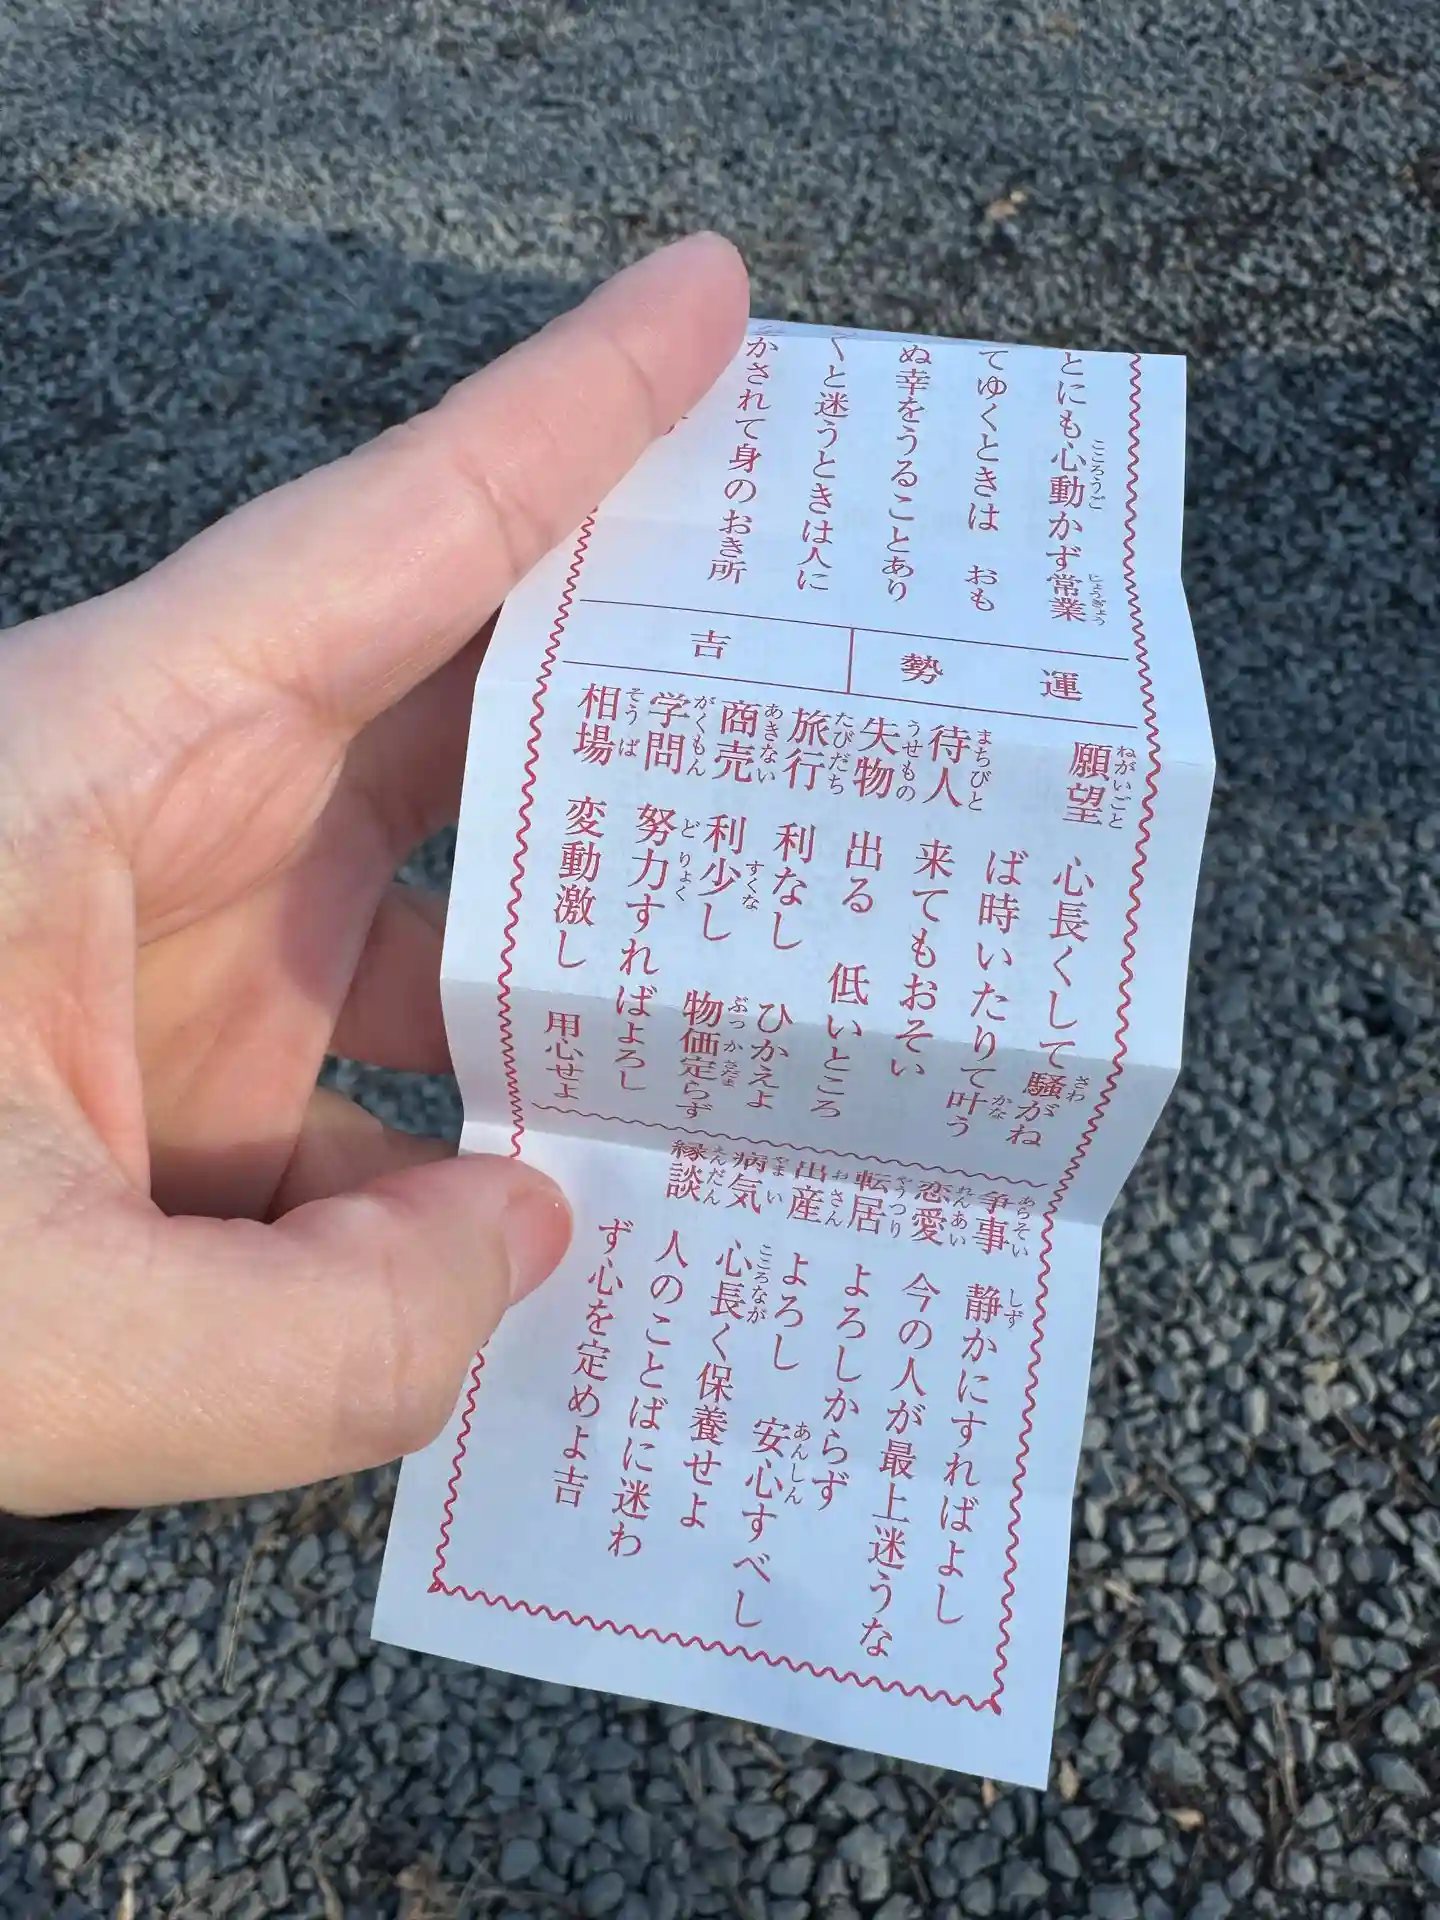 とにも心動かず常業
てゆくときは おも
ぬ幸をうることあり
くと迷うときは人に
かされて身のおき所
運勢
吉
願望 心長くして騒がね
ば時いたりて叶う
待人 来てもおそい
失物 出る 低いところ
旅行 利なし ひかえよ
商売 利少し 物価定らず
学問 努力すればよろし
相場 変動激し 用心せよ
争事 静かにすればよし
恋愛 今の人が最上迷うな
転居 よろしからず
出産 よろし 安心すべし
病気 心長く保養せよ
縁談 人のことばに迷わ
ず心を定めよ吉